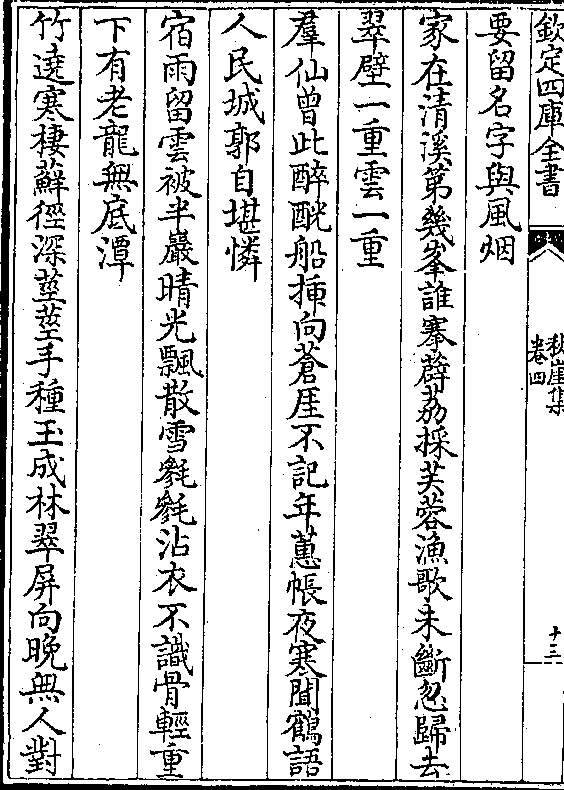 欽定四庫全書
秋崖集
卷四
十三
要留名字與風烟
家在清溪第幾峯誰搴薜荔採芙蓉漁歌未斷忽歸去
翠壁一重雲一重
羣仙曾此醉酡船揷向蒼厓不記年蕙帳夜寒聞鶴語
人民城郭自堪憐
宿雨留雲被半巖晴光飄散雪毿毿沾衣不識骨輕重
下有老龍無底潭
竹遶寒棲蘚徑深莖莖手種玉成林翠屏向晚無人對